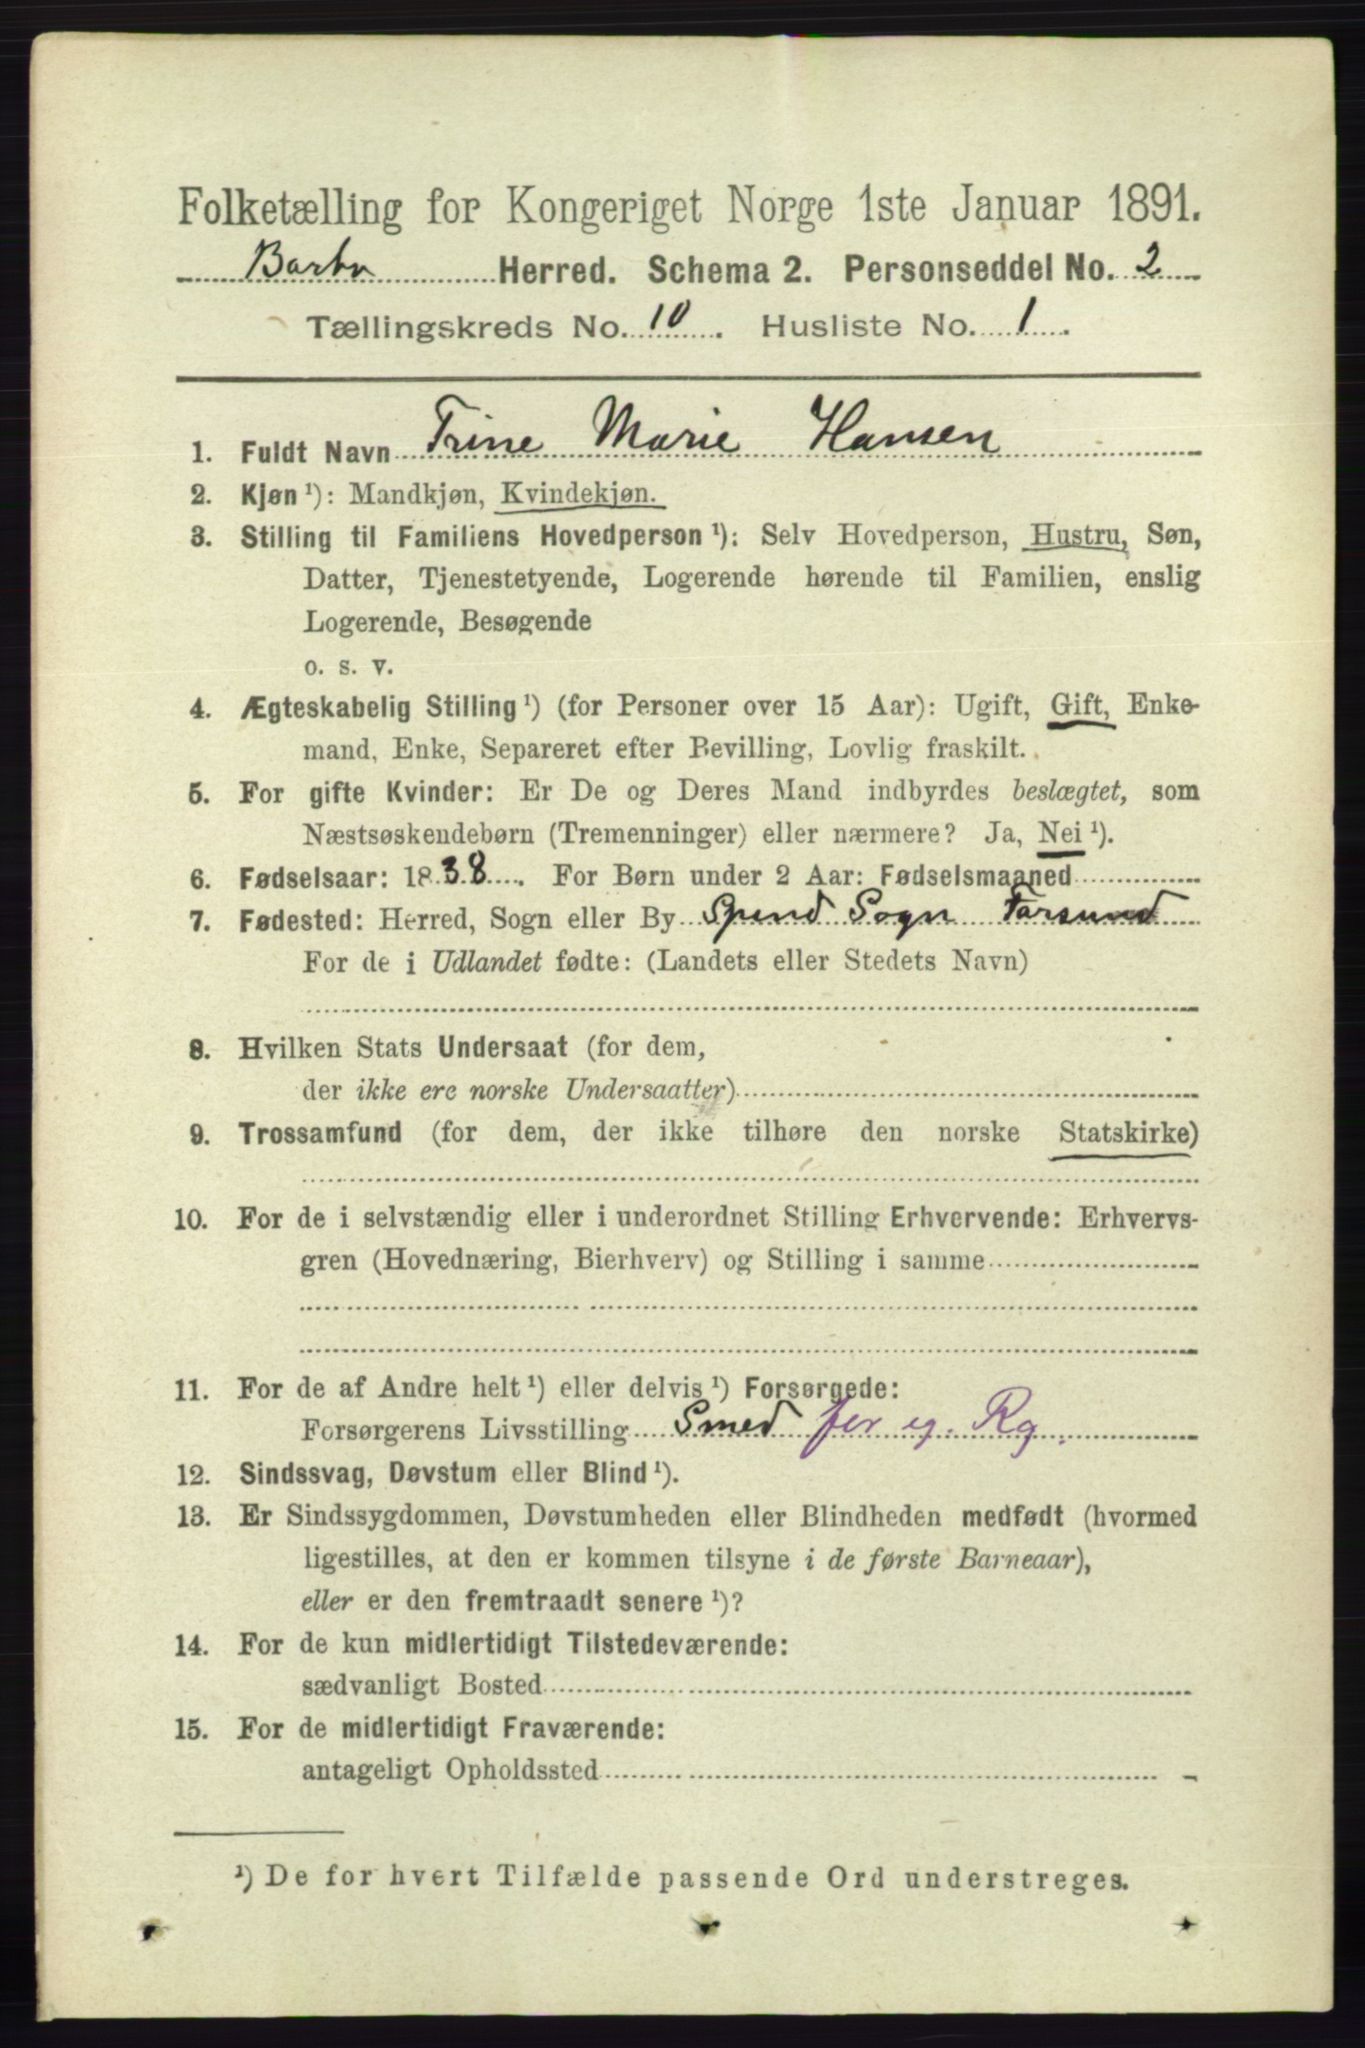 Folketælling for Kongeriget Norge 1ste Januar 1891.
Barbu Herred. Schema 2. Personseddel No. 2
Tællingskreds No. 10. Husliste No. 1.
1. Fuldt Navn Trine Marie Hansen
2. Kjøn ¹): Mandkjøn, Kvindekjøn.
3. Stilling til Familiens Hovedperson ¹): Selv Hovedperson, Hustru, Søn,
Datter, Tjenestetyende, Logerende hørende til Familien, enslig
Logerende, Besøgende
o. s. v.
4. Ægteskabelig Stilling ¹) (for Personer over 15 Aar): Ugift, Gift, Enke-
mand, Enke, Separeret efter Bevilling, Lovlig fraskilt.
5. For gifte Kvinder: Er De og Deres Mand indbyrdes beslægtet, som
Næstsøskendebørn (Tremenninger) eller nærmere? Ja, Nei ¹).
6. Fødselsaar: 1838. For Børn under 2 Aar: Fødselsmaaned
7. Fødested: Herred, Sogn eller By Spind Sogn Farsund
For de i Udlandet fødte: (Landets eller Stedets Navn)
8. Hvilken Stats Undersaat (for dem,
der ikke ere norske Undersaatter)
9. Trossamfund (for dem, der ikke tilhøre den norske Statskirke)
10. For de i selvstændig eller i underordnet Stilling Erhvervende: Erhvervs-
gren (Hovednæring, Bierhverv) og Stilling i samme
11. For de af Andre helt ¹) eller delvis ¹) Forsørgede:
Forsørgerens Livsstilling Smed for eg. Rg.
12. Sindssvag, Døvstum eller Blind ¹).
13. Er Sindssygdommen, Døvstumheden eller Blindheden medfødt (hvormed
ligestilles, at den er kommen tilsyne i de første Barneaar),
eller er den fremtraadt senere ¹)?
14. For de kun midlertidigt Tilstedeværende:
sædvanligt Bosted
15. For de midlertidigt Fraværende:
antageligt Opholdssted
¹) De for hvert Tilfælde passende Ord understreges.